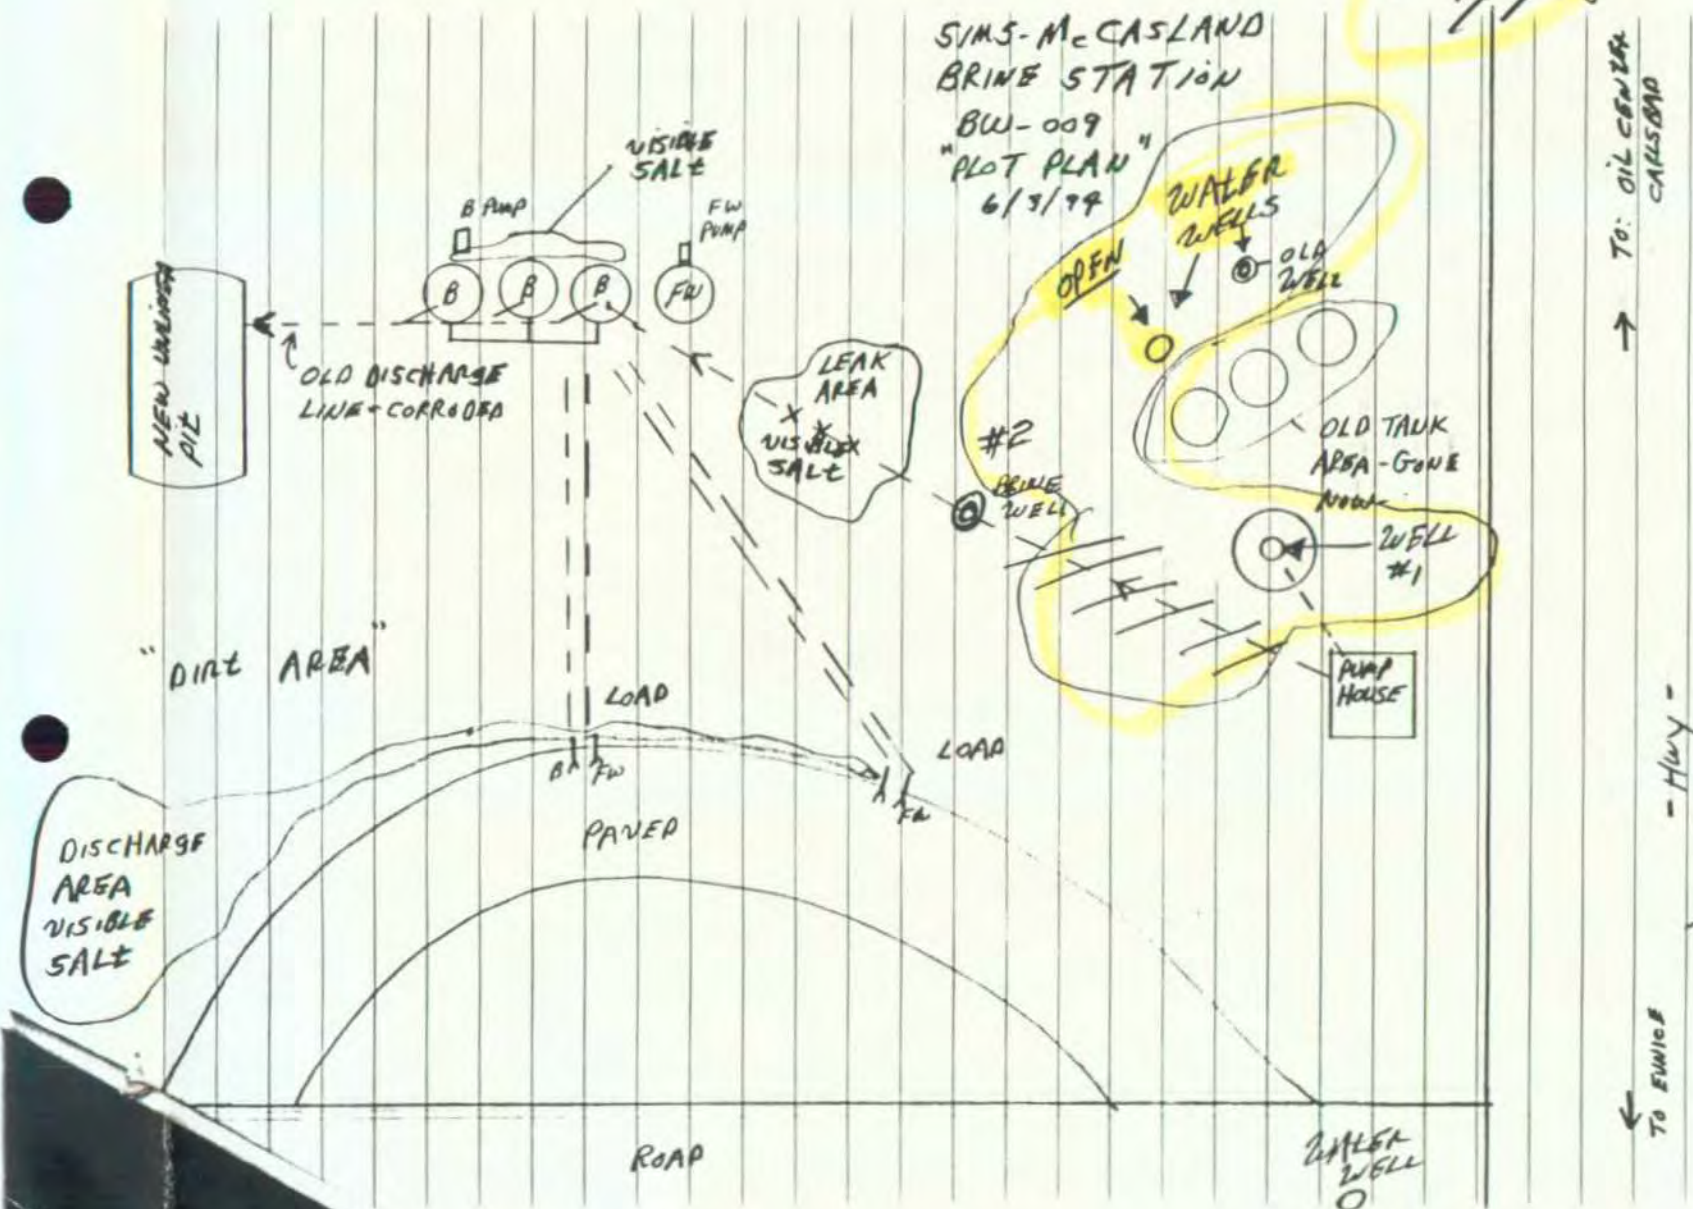 SIMS-McCASLAND
BRINE STATION
BW-009
"PLOT PLAN"
6/3/94
TO: OIL CENTER
CARLSBAD
VISIBLE
SALt
B PUMP
FW
PUMP
B
B
B
FW
WATER
WELLS
OPEN
OLD
WELL
NEW UNLINED
Pit
OLD DISCHARGE
LINE-CORRODED
LEAK
AREA
VISIBLE
SALt
#2
BRINE
WELL
OLD TANK
AREA-GONE
NOW
WELL
#1
PUMP
HOUSE
"DIRt AREA"
LOAD
LOAD
B
FW
FW
PAVED
- Hwy -
DISCHARGE
AREA
VISIBLE
SALt
ROAD
WATER
WELL
TO EUNICE